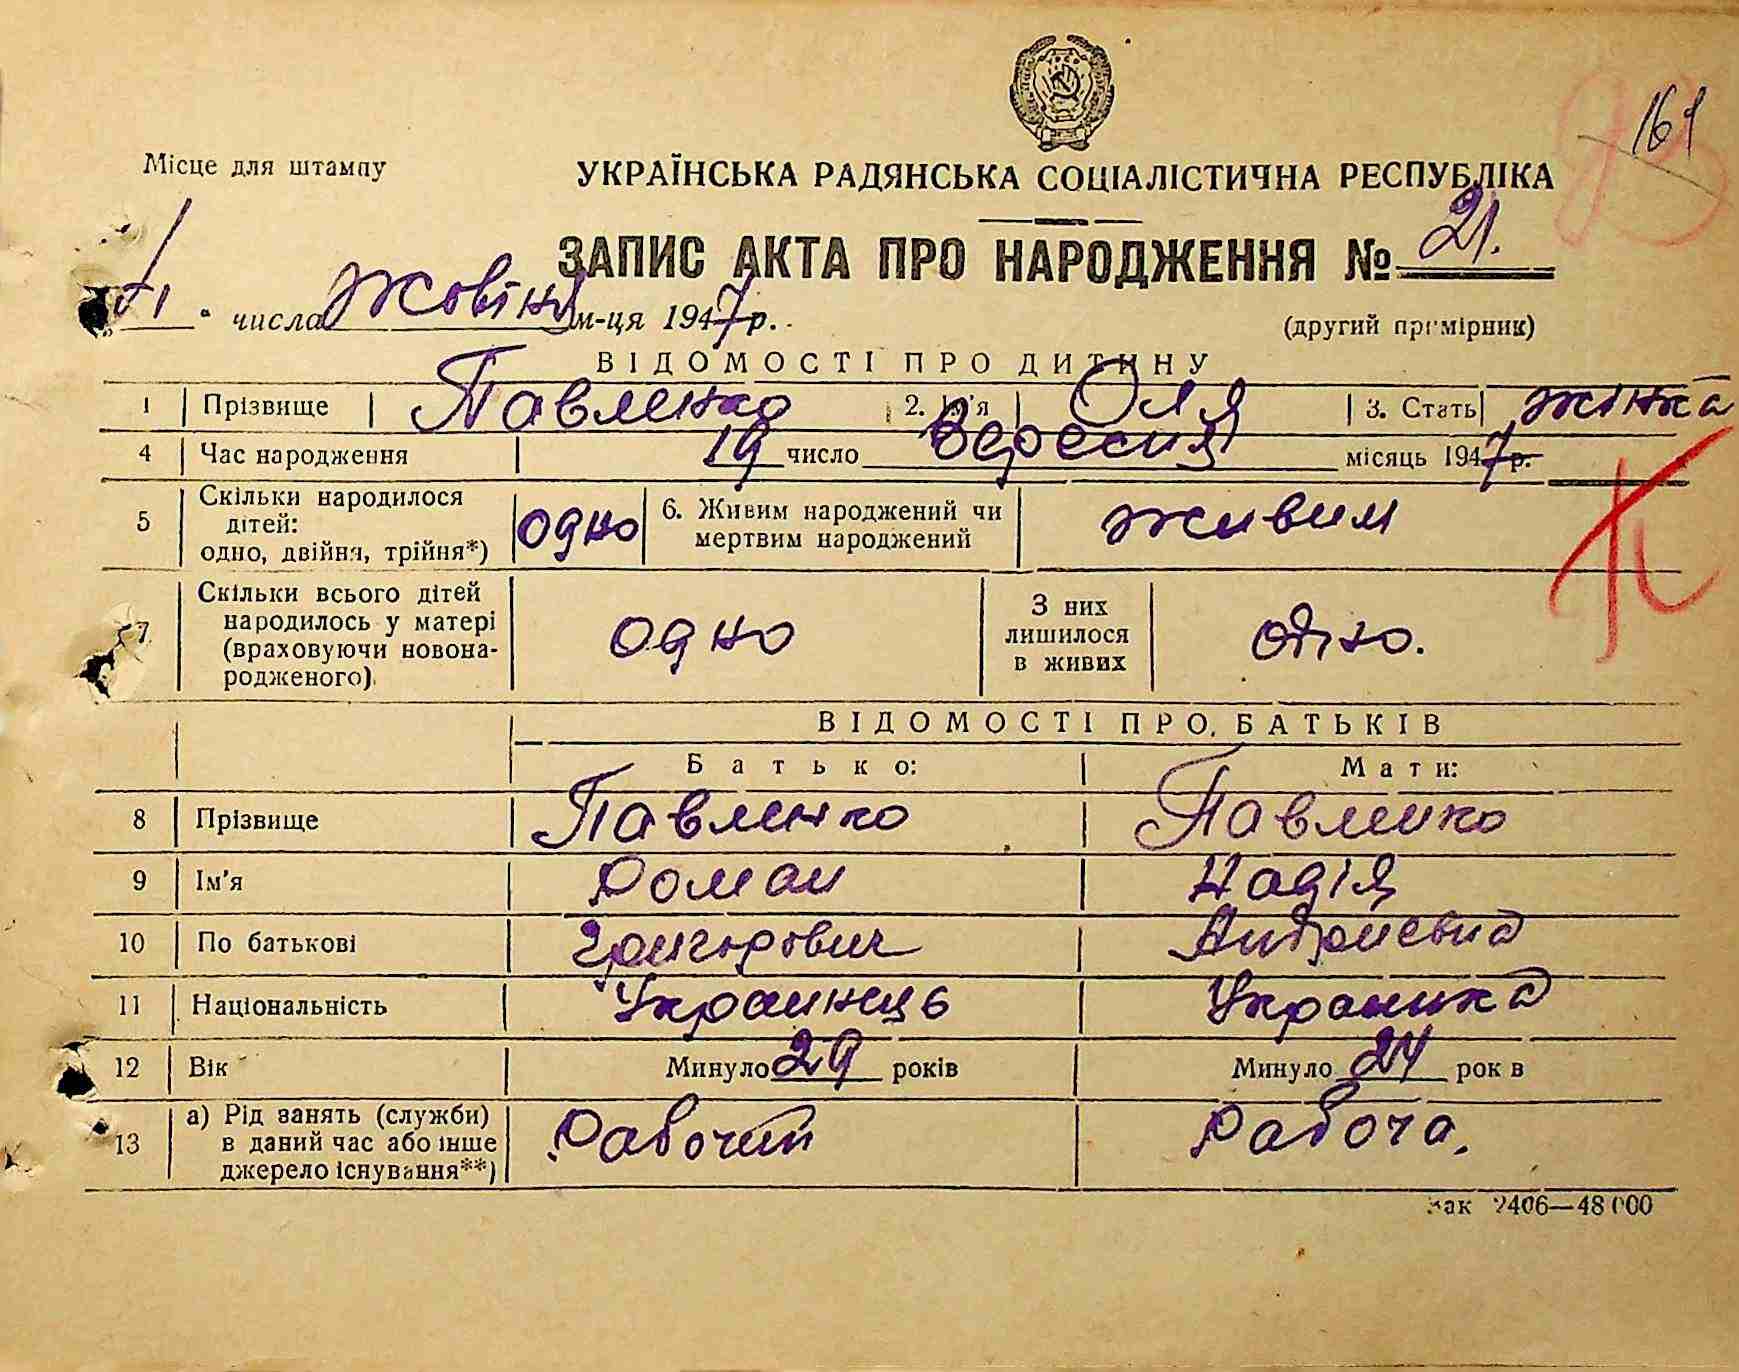 161
Місце для штампу
УКРАЇНСЬКА РАДЯНСЬКА СОЦІАЛІСТИЧНА РЕСПУБЛІКА
ЗАПИС АКТА ПРО НАРОДЖЕННЯ № 21.
„1“ числа Жовтня м-ця 1947 р.
(другий примірник)
ВІДОМОСТІ ПРО ДИТИНУ
1 Прізвище Павленко 2. Ім'я Оля 3. Стать жінка
4 Час народження 19 число Вересня місяць 1947 р.
5 Скільки народилося дітей: одно, двійня, трійня*) одно 6. Живим народжений чи мертвим народжений живим
7. Скільки всього дітей народилось у матері (враховуючи новонародженого). одно З них лишилося в живих одно.
ВІДОМОСТІ ПРО БАТЬКІВ
Батько: Мати:
8 Прізвище Павленко Павленко
9 Ім'я Роман Надія
10 По батькові Григорович Андріевна
11 Національність Украинець Украинка
12 Вік Минуло 29 років Минуло 24 рок в
13 а) Рід занять (служби) в даний час або інше джерело існування**) Рабочий Рабоча.
Зак 2406—48000